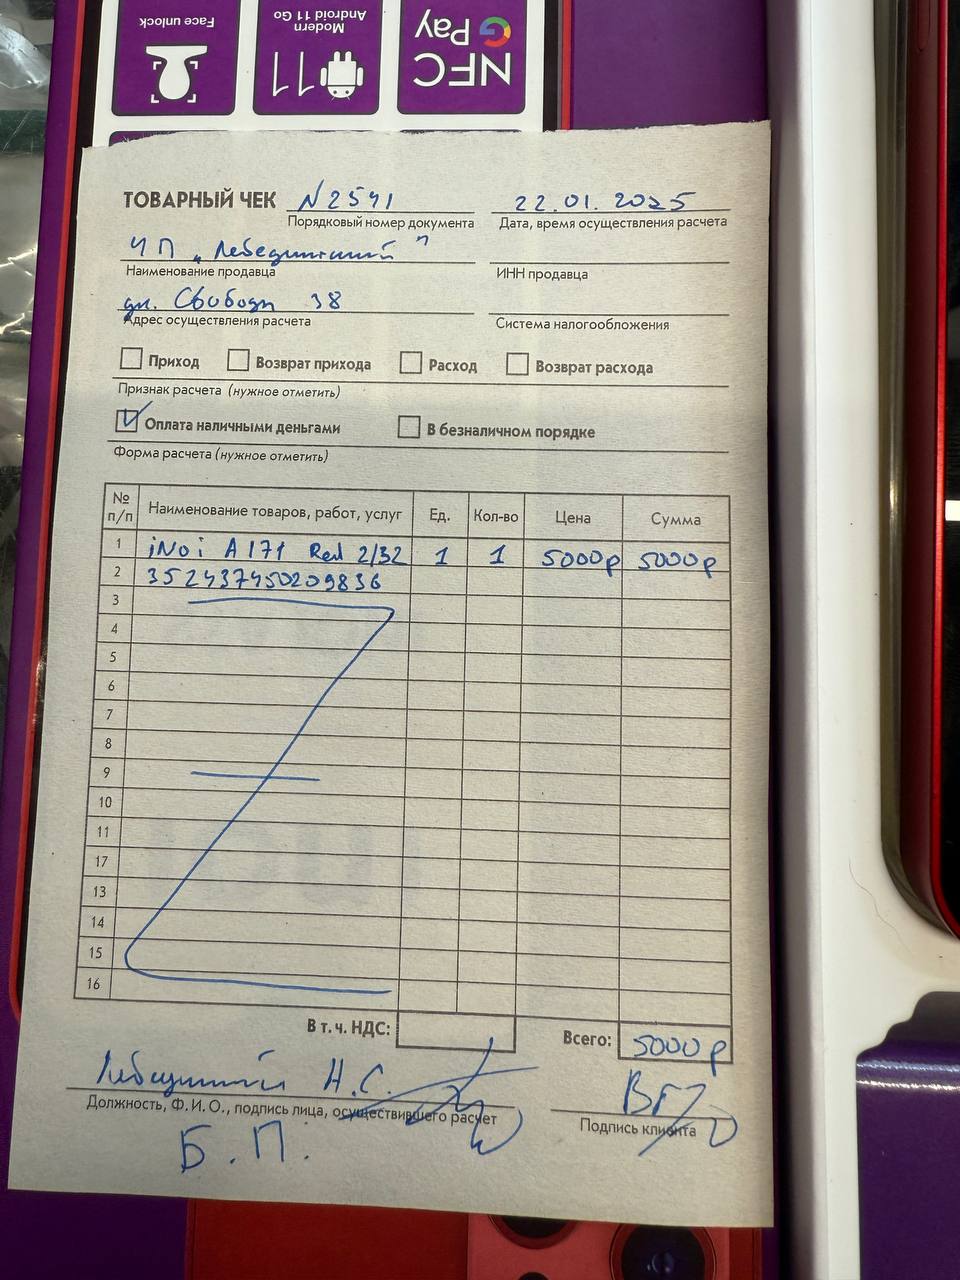 Face unlock
Modern Android 11 Go
11
NFC G Pay
ТОВАРНЫЙ ЧЕК N2541 22.01.2025
Порядковый номер документа Дата, время осуществления расчета
ЧП „Лебединский"
Наименование продавца ИНН продавца
ул. Свободы 38
Адрес осуществления расчета Система налогообложения
Приход Возврат прихода Расход Возврат расхода
Признак расчета (нужное отметить)
Оплата наличными деньгами В безналичном порядке
Форма расчета (нужное отметить)
№ п/п Наименование товаров, работ, услуг Ед. Кол-во Цена Сумма
1 iNoi A171 Red 2/32 1 1 5000р 5000р
2 352437450209836
3
4
5
6
7
8
9
10
11
17
13
14
15
16
В т. ч. НДС: Всего: 5000р
Лебединский Н.С.
Должность, Ф. И. О., подпись лица, осуществившего расчет Подпись клиента
Б.П.